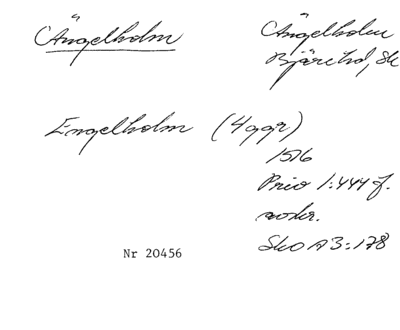 Ängelholm
Ängelholm
Bjäre hd, Sk
Engelholm (4 ggr)
1516
Priv 1:444 f.
vodr.
SkO A3:178
Nr 20456